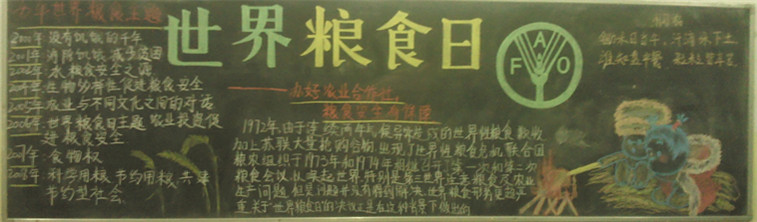 历年世界粮食主题
2000年 没有饥饿的千年
2001年 消除饥饿 减少贫困
2002年 水 粮食安全之源
生物多样性促进粮食安全
2005年 农业与不同文化之间的对话
2006年 世界粮食日主题 农业投资促
进粮食安全
2007年 食物权
2008年 科学用粮 节约用粮 共建
节约型社会
世界粮食日
FAO
办好农业合作社,
粮食安全有保障
1972年,由于连续两年气候异常造成的世界性粮食歉收
加上苏联大量抢购谷物,出现了世界性粮食危机 联合国
粮农组织于1973年和1974年相继召开了第一次和第二次
粮食会议 以唤起世界 特别是第三世界注意粮食及农业
生产问题 但是问题并没有得到解决 世界粮食形势更加严
重 关于"世界粮食日"的决议正是在这种背景下做出的
悯农
锄禾日当午,汗滴禾下土
谁知盘中餐 粒粒皆辛苦